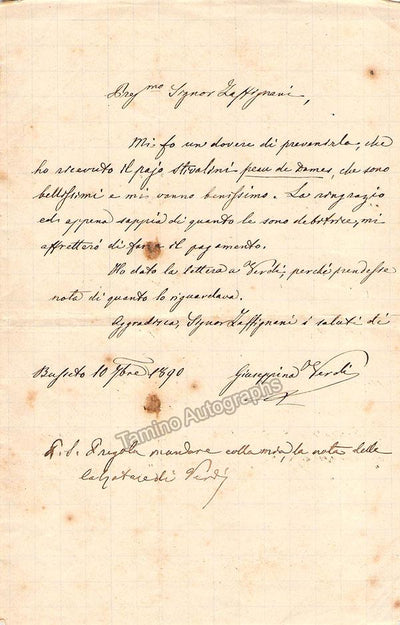 Preg.mo Signor Zaffignani,
Mi fo un dovere di prevenirla, che
ho ricevuto il pajo stivalini peau de Dames, che sono
bellissimi e mi vanno benissimo. La ringrazio
ed appena sappia di quanto le sono debitrice, mi
affretterò di farne il pagamento.
Ho dato la lettera a Verdi, perché prendesse
nota di quanto lo riguardava.
Aggradisca, Signor Zaffignani i saluti di
Busseto 10 9bre 1890
Giuseppina Verdi
Tamino Autographs
P. S. Pregola mandare colla mia, la nota delle
calzature di Verdi